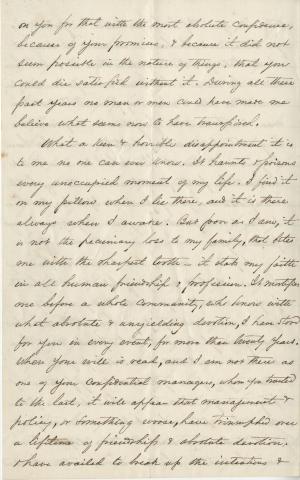 on you for that with the most absolute confidence,
because of your promises, & because it did not
seem possible in the nature of things, that you
could die satisfied without it. During all these
past years no man or men could have made me
believe what seems now to have transpired.
What a keen & horrible disappointment it is
to me no one can ever know. It haunts & poisons
every unoccupied moment of my life. I find it
on my pillow when I lie there, and it is there
always when I awake. But poor as I am, it
is not the pecuniary loss to my family, that bites
me with the sharpest tooth – it stabs my faith
in all human friendship & profession. It mortifies
me before a whole community, who know with
what absolute & unyielding devotion, I have stood
for you in every event, for more than twenty years.
When your will is read, and I am not there as
one of your confidential managers, whom you trusted
to the last, it will appear that management &
policy, or something worse, have triumphed over
a lifetime of friendship & absolute devotion,
& have availed to break up the intentions &